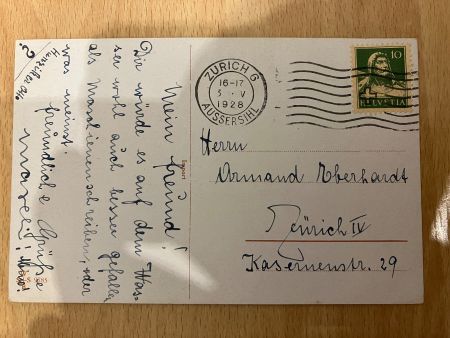 Mein Freund!
Dir würde es auf dem Was=
ser wohl auch besser gefallen
als Maschienenschreiben, oder
was meinst
freundliche Grüsse
Export
ZÜRICH 6
16-17
3. V
1928
AUSSERSIHL
10
HELVETIA
Herrn
Ormand Eberhardt
Zürich IV
Kasernenstr. 29